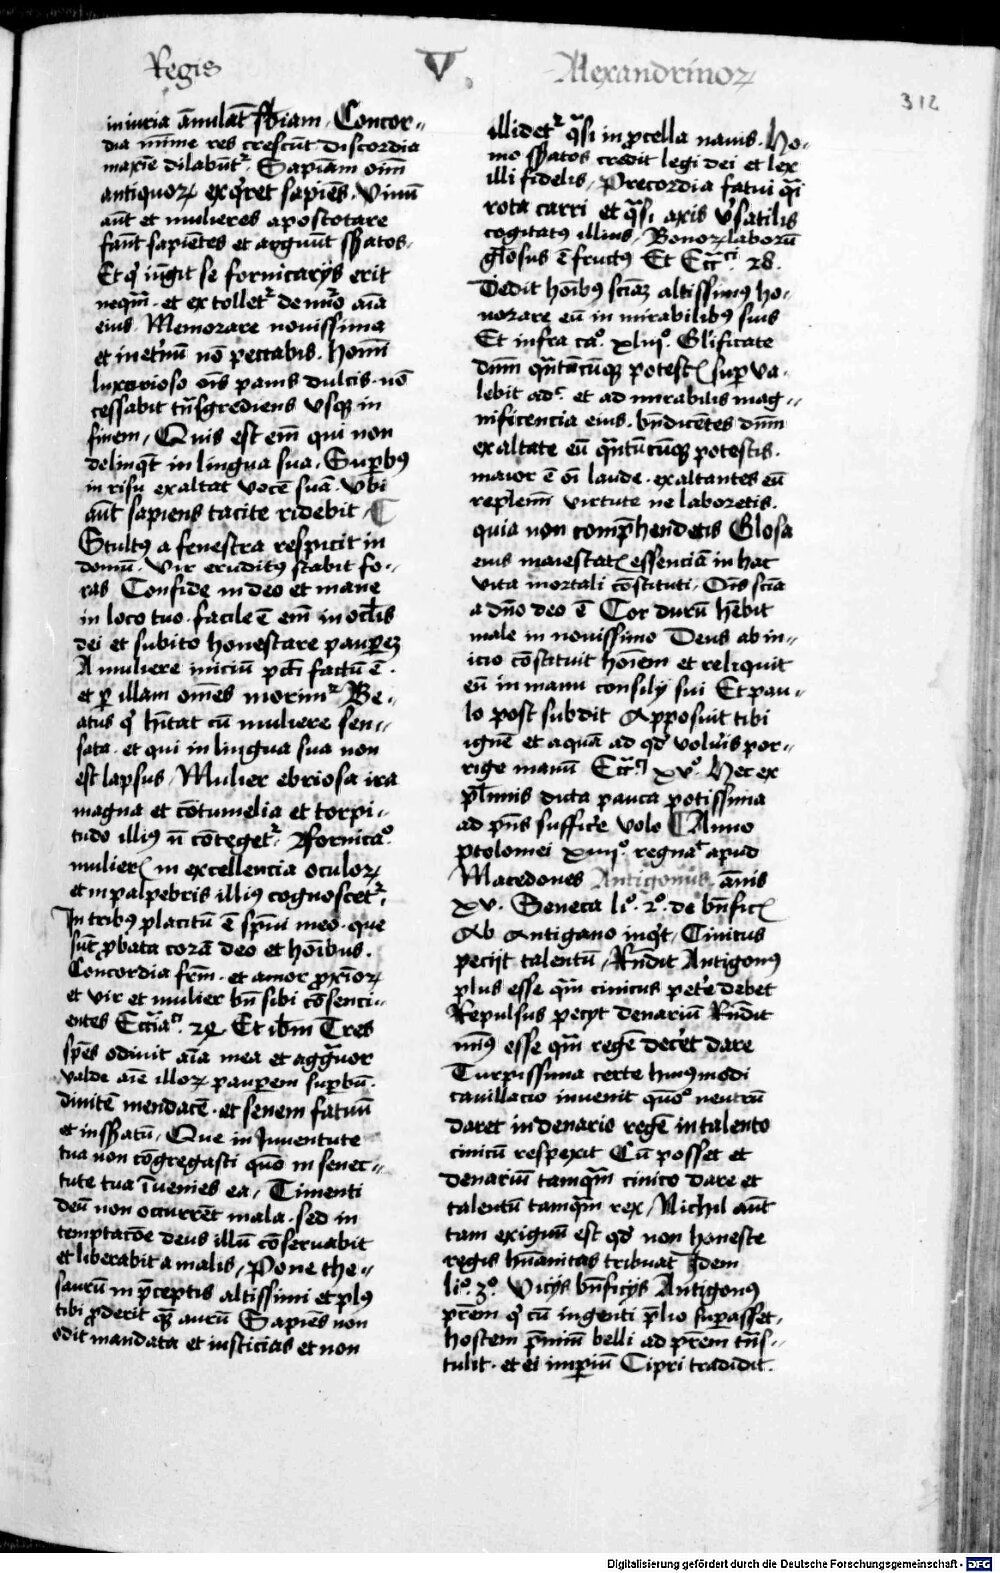 Regis V Alexandrinoꝝ
312
iniuria ānulāt sb̄iam. Concor-
dia mīme res crescūt discordia
maxīe dilabūtᷣ. Sapiām oīm
antiquoꝝ exq̄ret sapiēs. Vinū
aūt et mulieres apostotare
faūt sapiētes et arguūt sēatos.
Et qͥ iūgit se fornicarijs erit
neqm̄. et extolletᷣ de nūo aīa
eius. Memorare novissima
et inet̄nū nō peccabis. Homī
luxorioso oīs panis dulcis. nō
cessabit tn̄sgrediens vsqꝫ in
finem. Quis est em̄ qui non
delinqͥt in lingua sua. Supbꝰ
in risu exaltat vocē suā. vbi
aūt sapiens tacite ridebit ¶
Stultꝰ a fenestra respicit in
domū. Vir eruditꝰ stabit fo-
ras Confide in deo et mane
in loco tuo. facile ē em̄ in oclīs
dei et subito honestare paupeꝫ
A muliere iniciū pcti factū ē.
et ꝑ illam om̄es morimᷣ Be-
atus qͥ hītat cū muliere sen-
sata. et qui in lingua sua non
est lapsus. Mulier ebriosa ira
magna et cōtumelia et torpi-
tudo illiꝰ n̄ cōtegetᷣ. Fornicaͦ.
mulieꝝ in excellencia oculoꝝ
et in palpebris illiꝰ cognoscetᷣ.
In tribꝰ placitū ē spūi meo. que
sūt ꝓbata corā deo et hoībus.
Concordia frm̄. et amor ꝓxīoꝝ
et vir et mulier bn̄ sibi cōsenci-
entes Ecc̄iaᶜⁱ. 24 Et ibm̄ Tres
sp̄es odiuit aīa mea et aggͣuor
valde aīe illoꝝ pauperem supbū.
diuitē mendacē. et senem fatuū
et insēatū. Que in Juuentute
tua non cōgregasti quō in senec-
tute tua īuenies ea. Timenti
deū non occurrēt mala. sed in
temptacōe deus illū cōseruabit
et liberabit a malis. Pone the-
saurū in p̄ceptis altissimi et plꝰ
tibi ꝓderit qͣꝫ aurū Sapiēs non
odit mandata et iusticias et non
illidetᷣ qͣsi in ꝓcella nauis. Ho-
mo sēatos credit legi dei et lex
illi fidelis. Precordia fatui qͣi
rota carri et qͣsi axis v̄satilis
cogitatus illius. Bonoꝝ laborū
gl̄osus ē fructus Et Ecc̄iᶜⁱ. 28.
Dedit hoībꝰ sciāꝫ altissimꝰ ho-
norare eū in mirabilibꝰ suis
Et infra caͦ. xliijͦ. Gl̄ificate
dn̄m qn̄tūcūqꝫ potestꝭ supva-
lebit adᶜ. et ad mirabilis mag-
nificencia eius. bn̄dicētes dn̄m
exaltate eū qn̄tūcūqꝫ potestis.
maior ē oī laude. exaltantes eū
replemī virtute ne laboretis.
quia non comp̄hendetis Glosa
eius maiestatꝭ essenciā in hac
vita mortali cōstituti. Oīs scīa
a dn̄o deo ē Cor durū hēbit
male in nouissimo Deus ab in-
icio cōstituit hoīem et reliquit
eū in manu consilij sui Et pau-
lo post subdit Apposuit tibi
ignē et aquā ad qd̄ volūis por-
rige manū Ecc̄iᶜⁱ xvͦ. Hec ex
pl̄imis dicta pauca potissima
ad pn̄s suffic̄e volo ¶ Anno
ptolomei xiiijͦ. regnaͭ apud
Macedones Antigonus. ānis
xv. Seneca liͦ. 2ͦ. de bn̄ficꝭ
Ab Antigano inqͥt. Cinicus
pecijt talentū. Rn̄dit Antigonꝰ
plus esse qͣm cinicus pet̄e debet
Repulsus pecyt denariū Rn̄dit
minꝰ esse qͣm regē dec̄et dare
Turpissima certe huiꝰmodi
cauillacio inuenit quōͦ neutrū
daret in denario regē in talento
cinicū respexit Cū posset et
denariū tamqͣm cinico dare et
talentū tamqͣm rex. Nichil aūt
tam exiguū est qd̄ non honeste
regis hūanitas tribuat Idem
liͦ. 3ͦ. Vicijs bn̄ficijs Antigonꝰ
pr̄em qͥ cū ingenti p̄lio supasset.
hostem p̄miū belli ad pr̄em tn̄s-
tulit. et ei impiū Cipri tradidit.
Digitalisierung gefördert durch die Deutsche Forschungsgemeinschaft - DFG